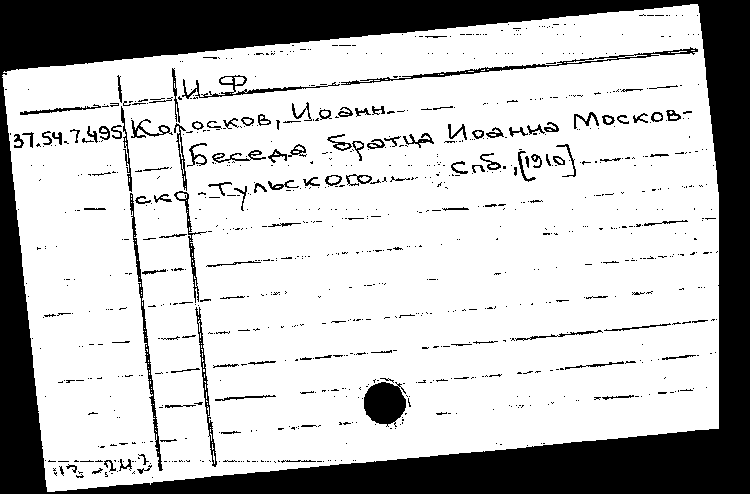 И. Ф
37.54.7.495 Колосков, Иоанн.
Беседа братца Иоанна Москов-
ско-Тульского... Спб., [1910]